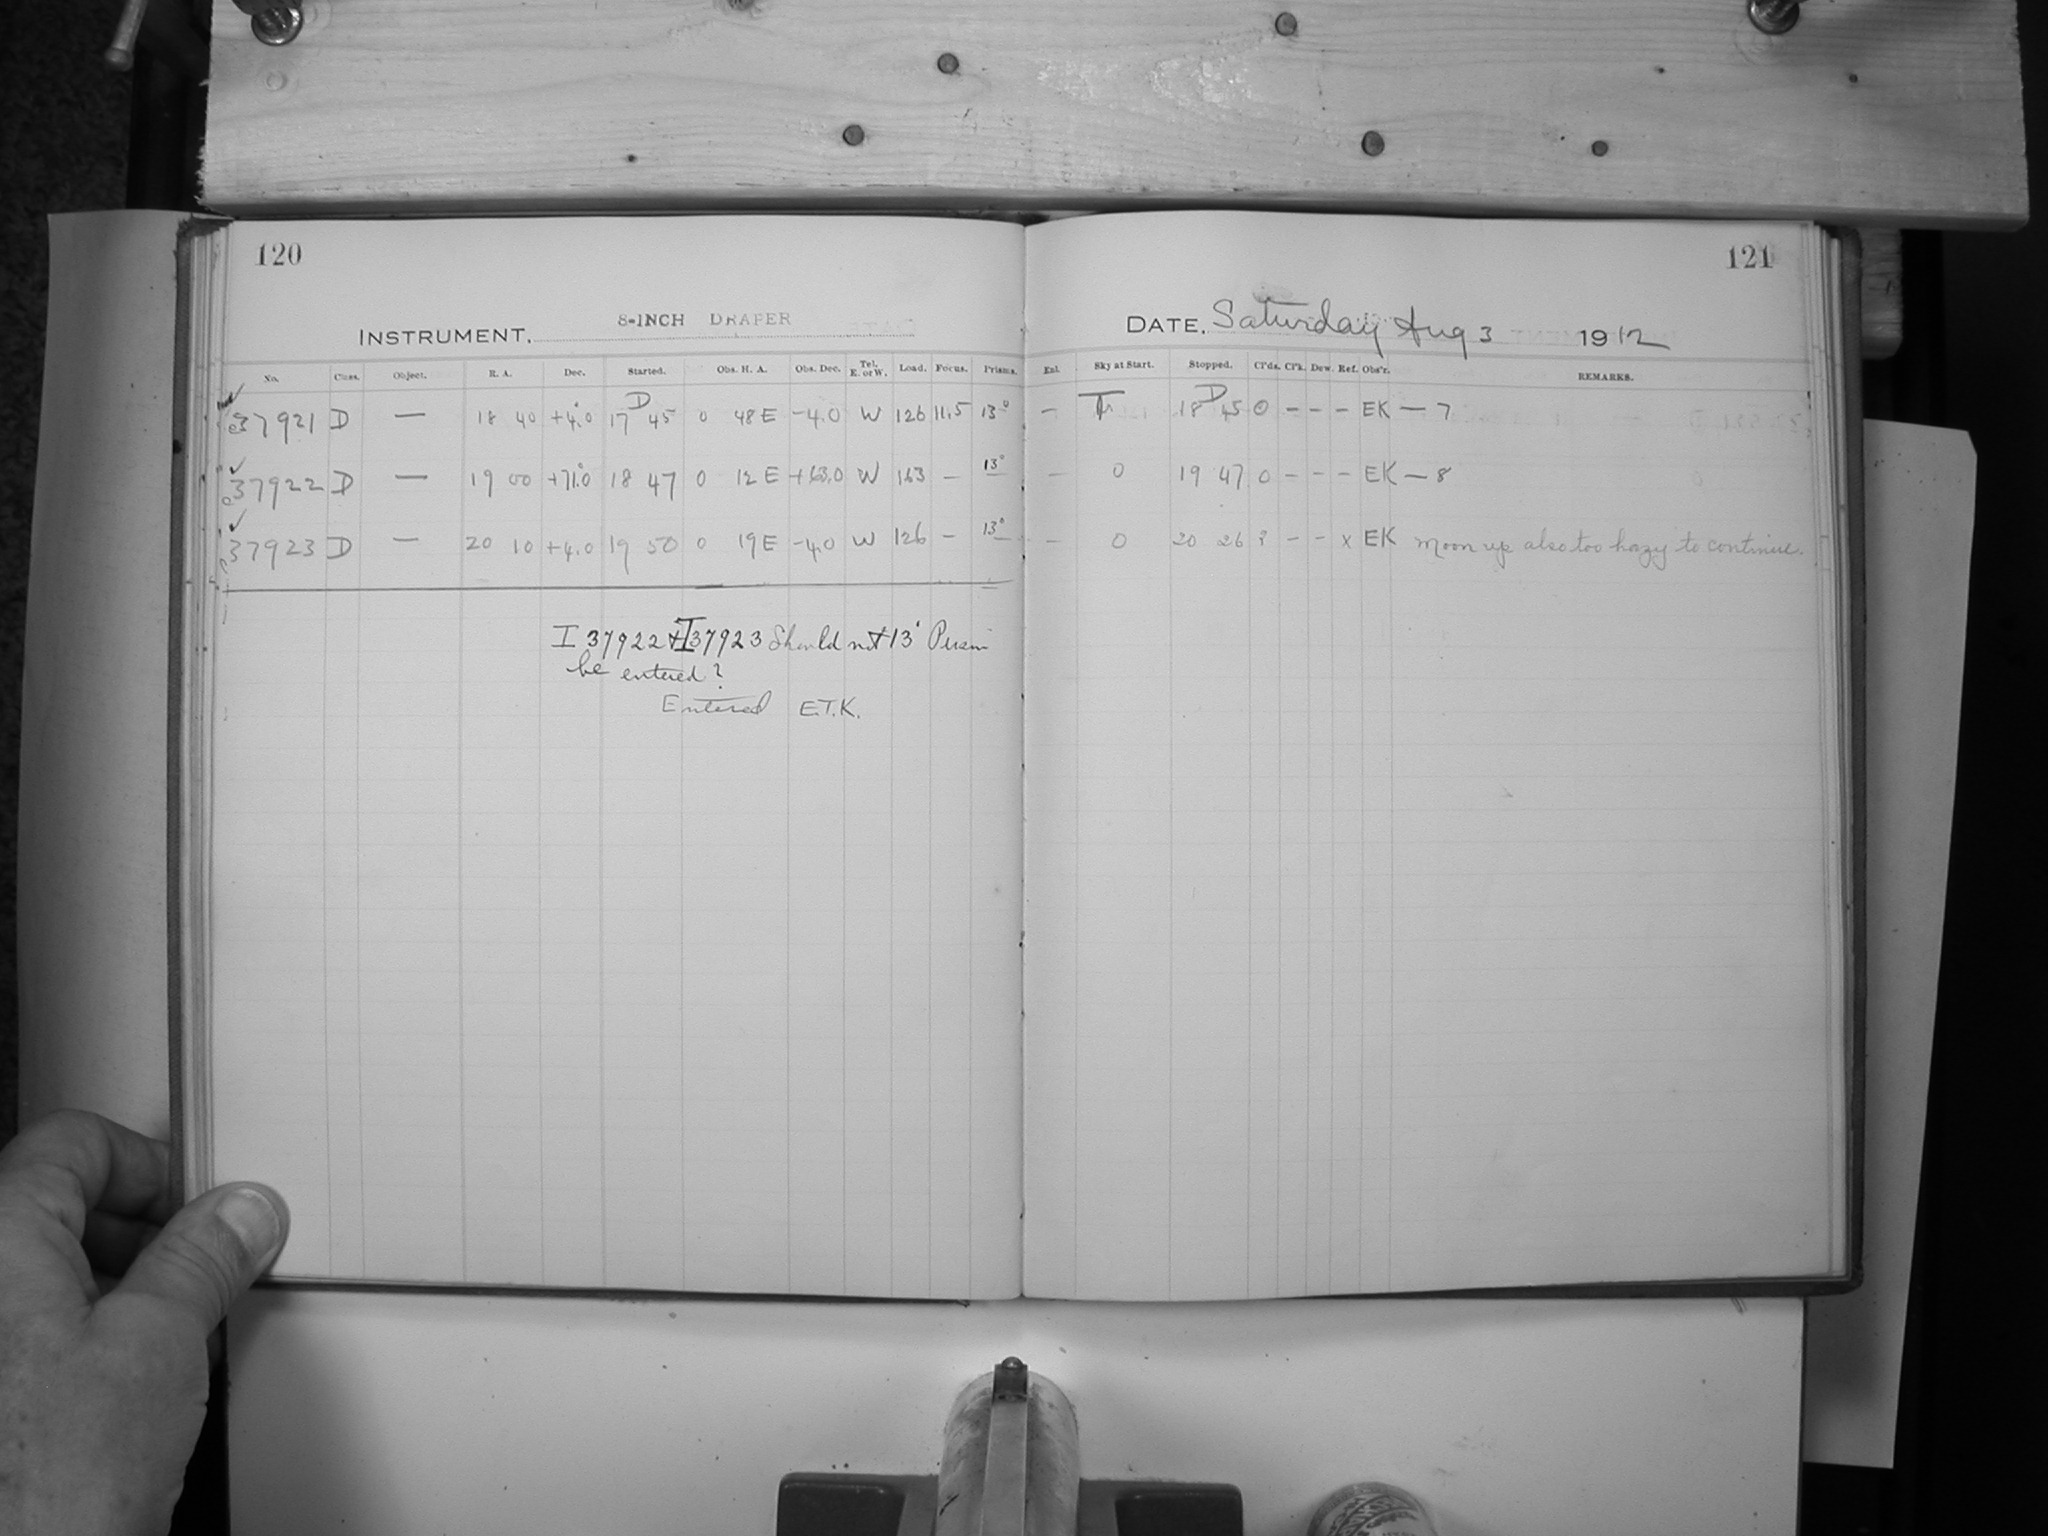 120
121
INSTRUMENT. 8-INCH DRAPER
DATE. Saturday Aug 3 1912
No. Class. Object. R. A. Dec. Started. Obs. H. A. Obs. Dec. Tel. E. or W. Load. Focus. Prisms. Enl. Sky at Start. Stopped. Cl'ds. Cl'k. Dew. Ref. Obs'r. REMARKS.
37921 D — 18 40 +4.0 17 D 45 0 48 E -4.0 W 126 11.5 13° — Tr 18 D 45 0 - - - EK — 7
37922 D — 19 00 +71.0 18 47 0 12 E +63.0 W 163 — 13° — 0 19 47 0 - - - EK — 8
37923 D — 20 10 +4.0 19 50 0 19 E -4.0 W 126 — 13° — 0 20 26 ? - - x EK Moon up also too hazy to continue.
I 37922 + I 37923 Should not 13° Prism
be entered?
Entered E.T.K.